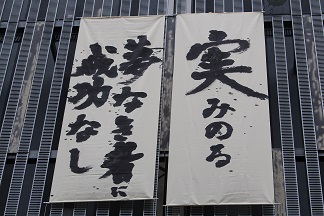 実みのる
夢なき者に
成功なし